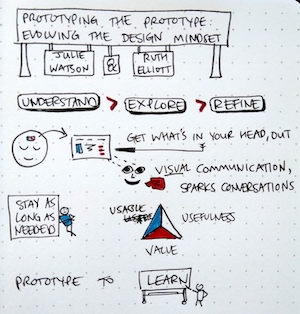 PROTOTYPING THE PROTOTYPE:
EVOLVING THE DESIGN MINDSET
JULIE
WATSON
&
RUTH
ELLIOTT
UNDERSTAND > EXPLORE > REFINE
GET WHAT'S IN YOUR HEAD, OUT
VISUAL COMMUNICATION,
SPARKS CONVERSATIONS
STAY AS
LONG AS
NEEDED
USABLE
USEFULNESS
VALUE
PROTOTYPE TO LEARN